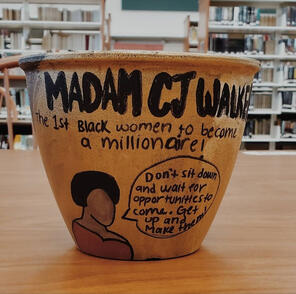 MADAM CJ WALKER
The 1st Black women to become
a millionaire!
Don't sit down
and wait for
opportunities to
come. Get
up and
Make them!